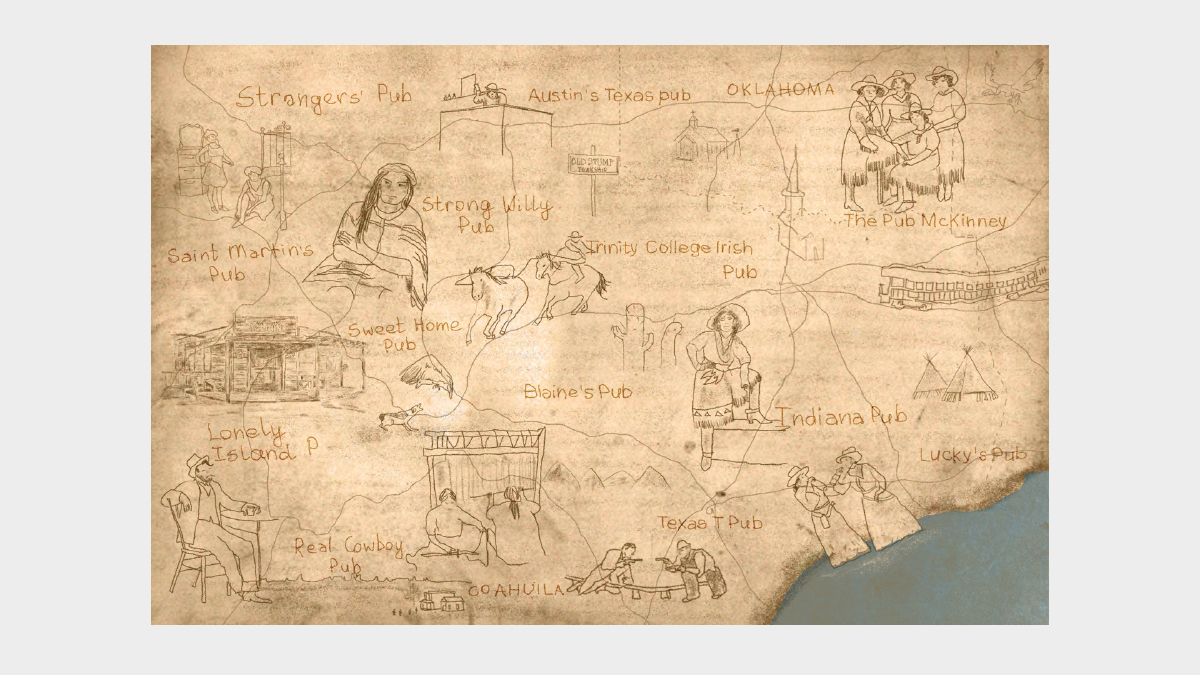 Strangers' Pub
Austin's Texas pub
OKLAHOMA
OLD STUMP
TOWNSHIP
Strong Willy
Pub
The Pub McKinney
Saint Martin's
Pub
Trinity College Irish
Pub
Sweet Home
Pub
Blaine's Pub
Indiana Pub
Lonely
Island P
Lucky's Pub
Texas T Pub
Real Cowboy
Pub
COAHUILA